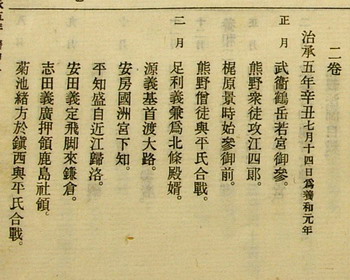 二卷
治承五年辛丑七月十四日爲養和元年
正月
武衞鶴岳若宮御參。
熊野衆徒攻江四郞。
梶原景時始參御前。
熊野僧徒與平氏合戰。
二月
足利義兼爲北條殿婿。
源義基首渡大路。
安房國洲宮下知。
平知盛自近江歸洛。
安田義定飛脚來鎌倉。
志田義廣押領鹿島社領。
菊池緒方於鎭西與平氏合戰。